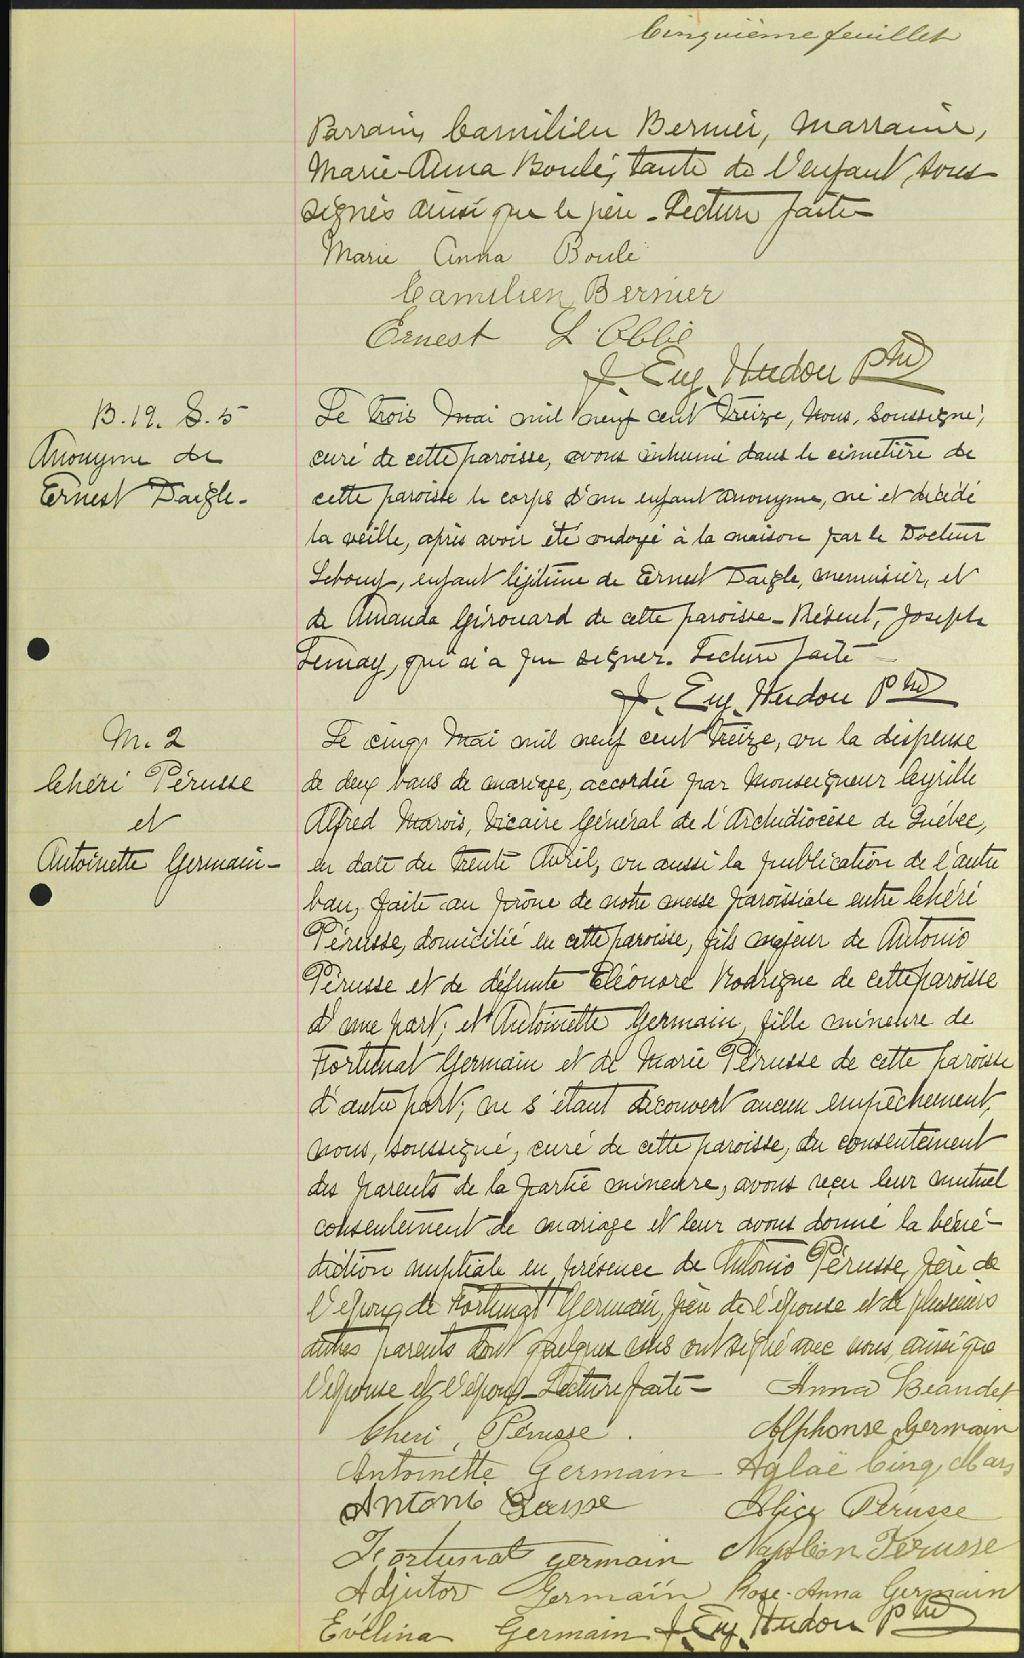 Cinquième feuillet
Parrain, Camilien Bernier, marraine,
Marie-Anna Boulé, tante de l'enfant, sous-
signés ainsi que le père - Lecture faite -
Marie Anna Boulé
Camilien Bernier
Ernest L'Abbé
J. Eug. Hudon Ptre
B.19. S.5
Anonyme de
Ernest Daigle -
Le trois Mai mil neuf cent treize, Nous, soussigné,
curé de cette paroisse, avons inhumé dans le cimetière de
cette paroisse le corps d'un enfant anonyme, né et décédé
la veille, après avoir été ondoyé à la maison par le Docteur
Lebouf, enfant légitime de Ernest Daigle, menuisier, et
de Amanda Girouard de cette paroisse - Présent, Joseph
Lemay, qui n'a pu signer. Lecture faite -
J. Eug. Hudon Ptre
M. 2
Chéri Pérusse
et
Antoinette Germain -
Le cinq Mai mil neuf cent treize, vu la dispense
de deux bans de mariage, accordée par Monseigneur Cyrille
Alfred Marois, Vicaire Général de l'Archidiocèse de Québec,
en date du trente Avril, vu aussi la publication de l'autre
ban, faite au prône de notre messe paroissiale entre Chéri
Pérusse, domicilié en cette paroisse, fils majeur de Antonio
Pérusse et de défunte Eléonore Rodrigue de cette paroisse
d'une part; et Antoinette Germain, fille mineure de
Fortunat Germain et de Marie Pérusse de cette paroisse
d'autre part; ne s'étant découvert aucun empêchement,
nous, soussigné, curé de cette paroisse, du consentement
des parents de la partie mineure, avons reçu leur mutuel
consentement de mariage et leur avons donné la béné-
diction nuptiale en présence de Antonio Pérusse, père de
l'époux, de Fortunat Germain, père de l'épouse et de plusieurs
autres parents dont quelques uns ont signé avec nous, ainsi que
l'épouse et l'époux - Lecture faite - Anna Beaudet
Cheri Pérusse. Alphonse Germain
Antoinette Germain Aglaë Cinq Mars
Antoni Alice Pérusse
Fortunat germain Napoléon Pérusse
Adjutor Germain Rose-Anna Germain
Evélina Germain J. Eug. Hudon Ptre